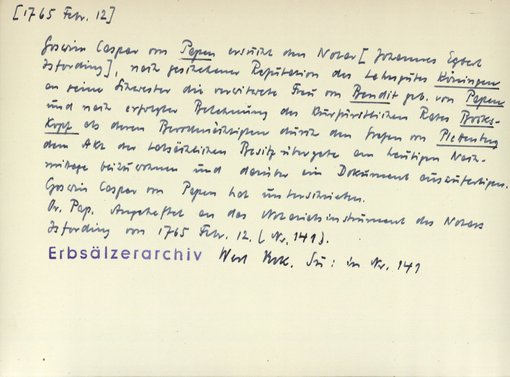 [1765 Febr. 12]
Goswin Caspar von Papen ersucht den Notar [Johannes Egbert
Isfording], nach geschehener Reputation des Lehngutes Köningen
an seine Schwester die verwitwete Frau von Bendit geb. von Papen
und nach erfolgter Belehnung des Kurfürstlichen Rates Bocks-
kopf als deren Bevollmächtigten durch den Grafen von Plettenberg
dem Akt der tatsächlichen Besitzübergabe am heutigen Nach-
mittage beizuwohnen und darüber ein Dokument auszufertigen.
Goswin Caspar von Papen hat unterschrieben.
Or. Pap. Angeheftet an das Notariatsinstrument des Notars
Isfording von 1765 Febr. 12. (Nr. 141).
Erbsälzerarchiv Werl Urk. in Nr. 141